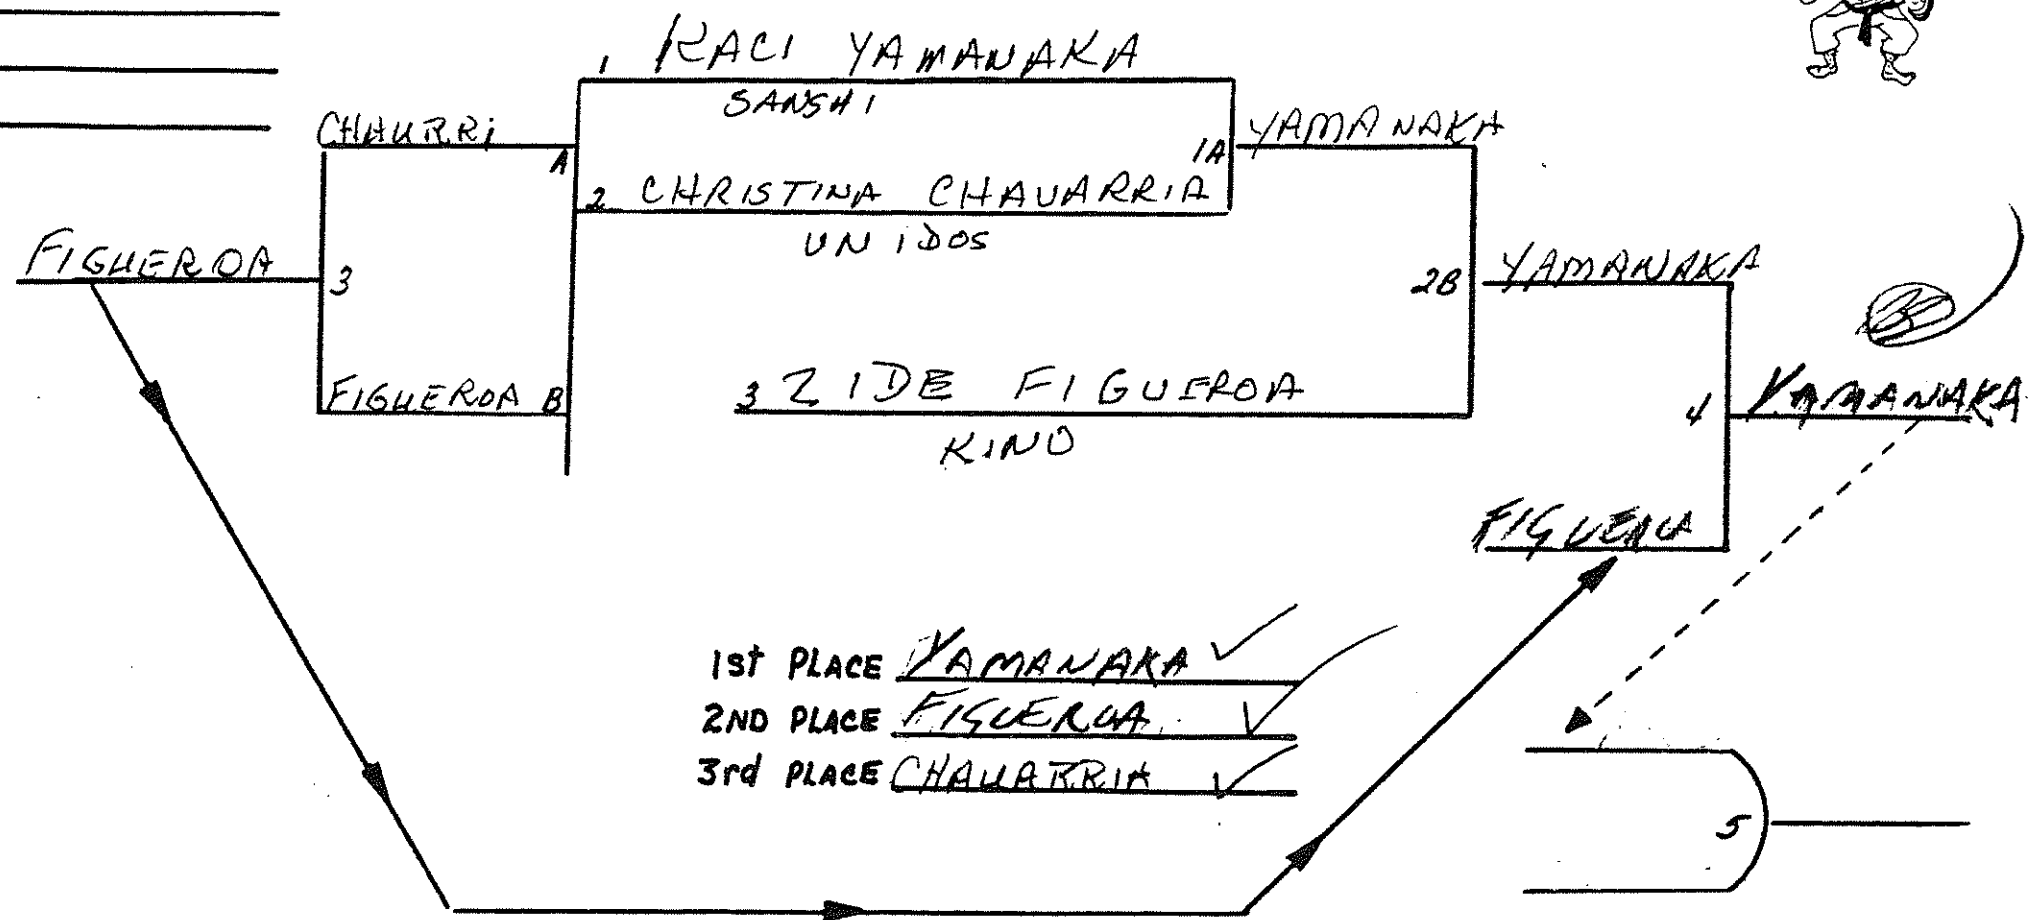 1 KACI YAMANAKA
SANSHI
CHAURRi A
1A YAMANAKA
2 CHRISTINA CHAVARRIA
UNIDOS
FIGUEROA 3
2B YAMANAKA
FIGUEROA B
3 ZIDE FIGUEROA
KINO
4 YAMANAKA
FIGUEROA
1st PLACE YAMANAKA
2ND PLACE FIGUEROA
3rd PLACE CHAVARRIA
5